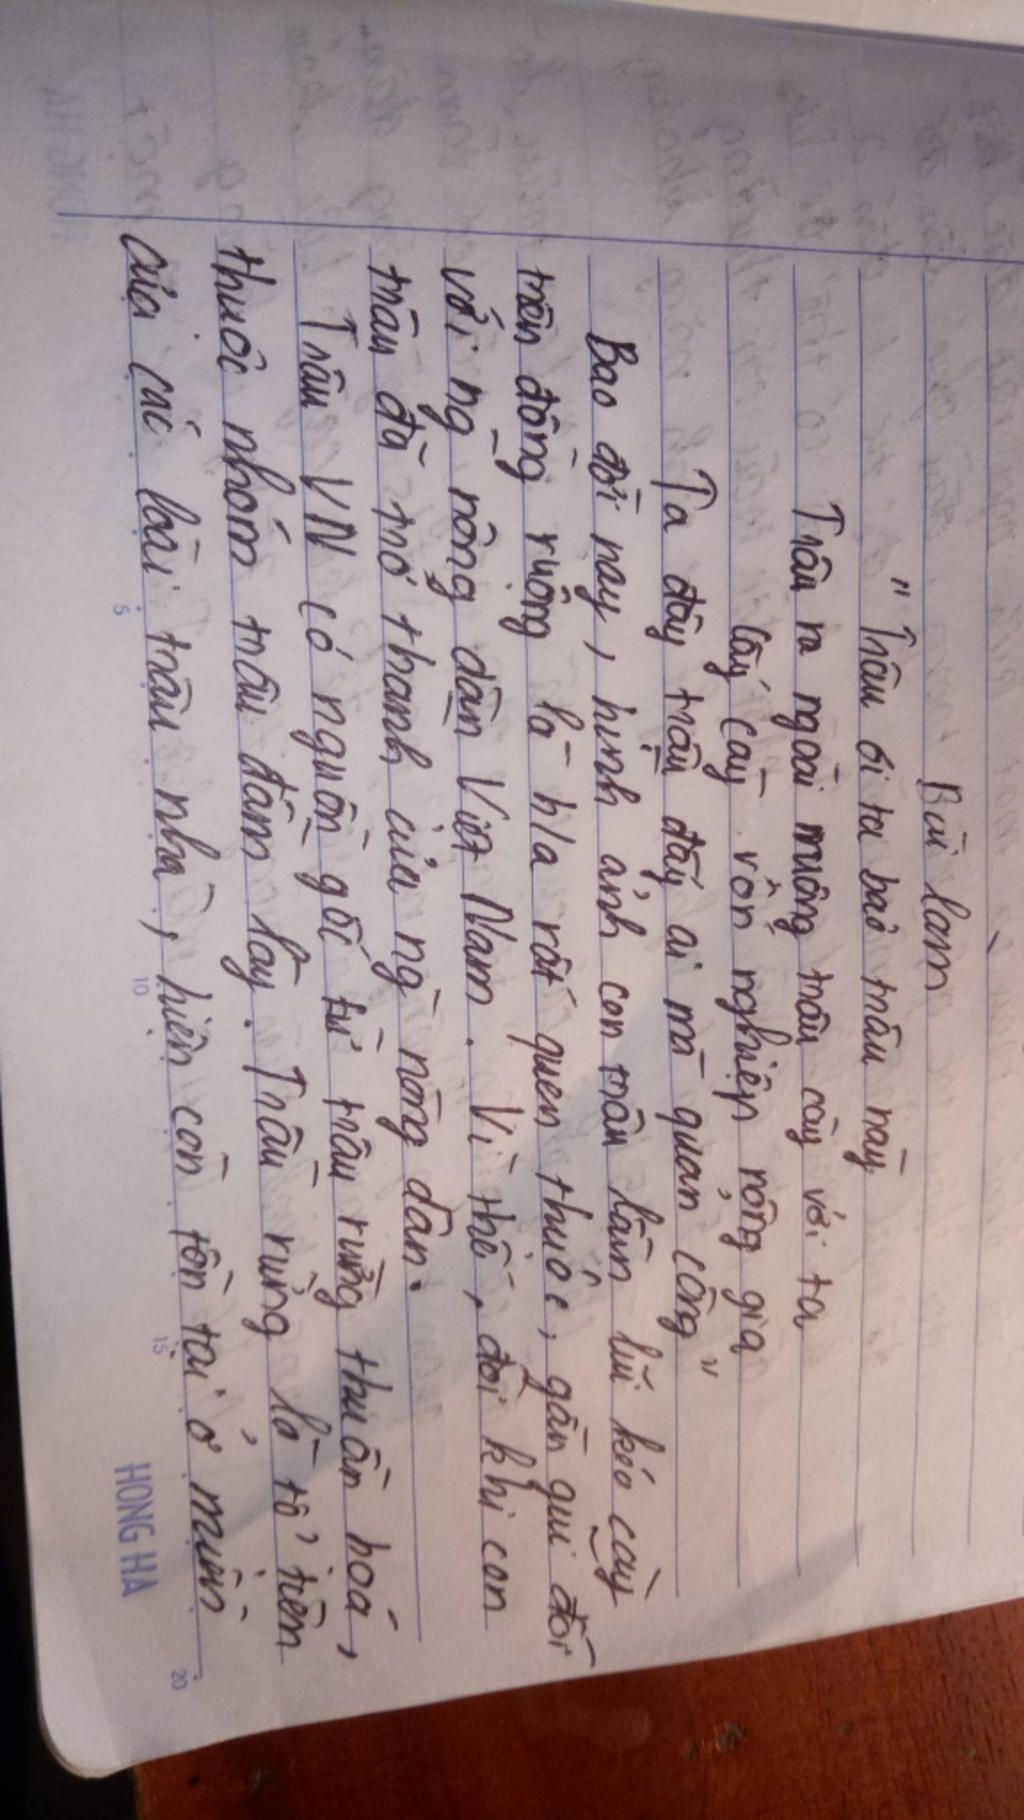 Bài làm
"Trâu ơi ta bảo trâu này
Trâu ra ngoài ruộng trâu cày với ta
Cấy cày vốn nghiệp nông gia
Ta đây trâu đấy ai mà quản công"
Bao đời nay, hình ảnh con trâu lầm lũi kéo cày
trên đồng ruộng là h/a rất quen thuộc, gần gũi đối
với ng nông dân Việt Nam. Vì thế, đôi khi con
trâu đã trở thành của ng nông dân.
Trâu VN có nguồn gốc từ trâu rừng thuần hoá,
thuộc nhóm trâu đầm lầy. Trâu rừng là tổ tiên
của các loài trâu nhà, hiện còn tồn tại ở miền
5 10 15 20
HONG HA